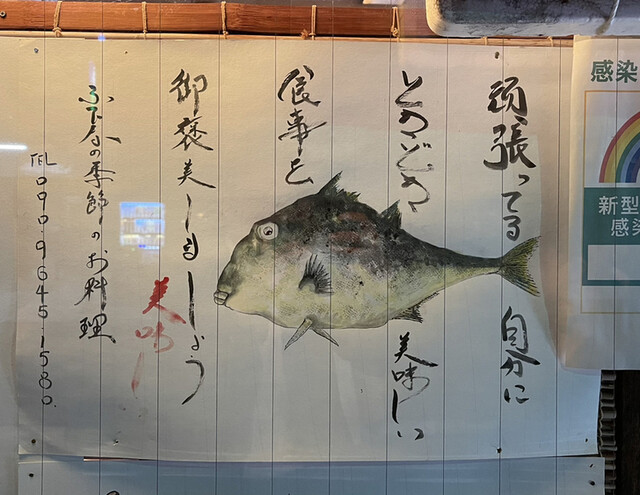 感染
新型
感染
頑張ってる 自分に
ときどき 美味しい
食事を
御褒美しましょう
美味し
の季節のお料理
TEL 090.9645.1580.